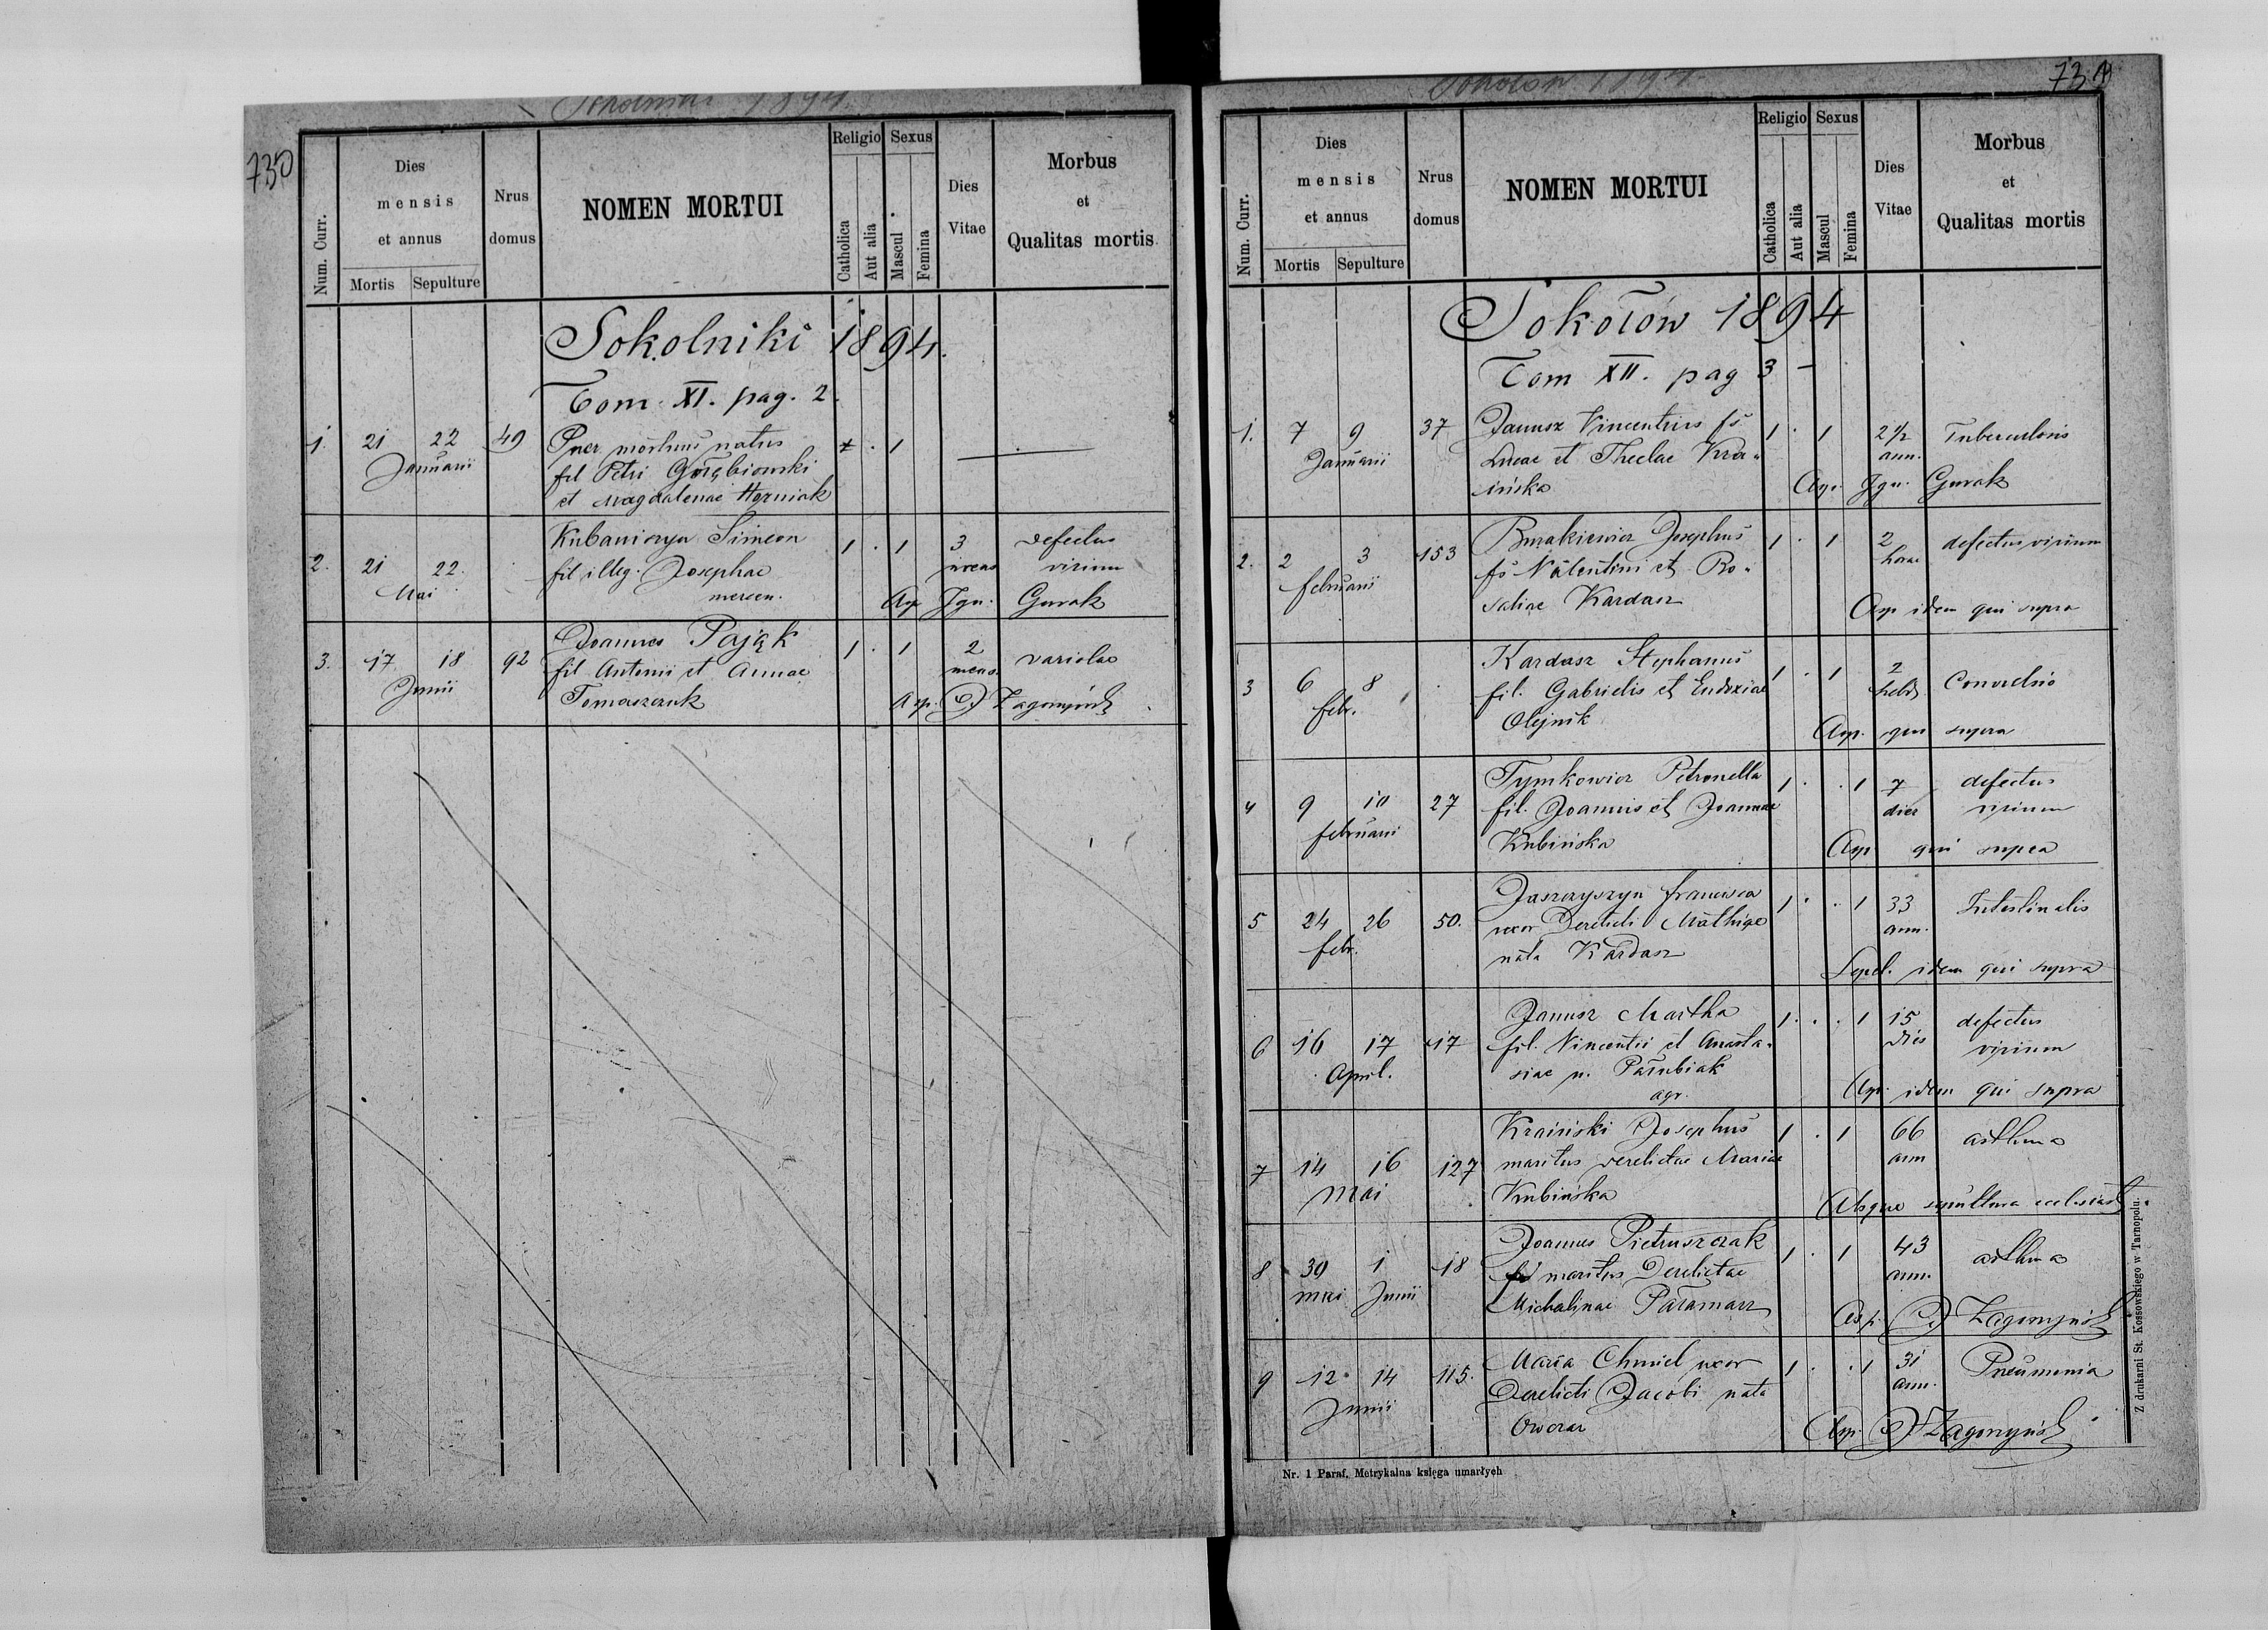 Sokolniki 1894
730
Num. Curr.
Dies
mensis
et annus
Mortis
Sepulture
Nrus
domus
NOMEN MORTUI
Religio
Catholica
Aut alia
Sexus
Mascul
Femina
Dies
Vitae
Morbus
et
Qualitas mortis
Sokolniki 1894.
Tom XI. pag. 2.
1. 21 22 49 Puer mortuus natus 1 . 1
Januarii fil Petri Gołębiowski
et Magdalenae Horniak
Kubaniczyn Simeon 1 . 1 3 defectus
2. 21 22 fil illeg. Josephae mens virium
Mai mercen. Ap Ign. Gurak
Joannes Pająk 1 . 1 2
3. 17 18 92 fil Antonii et Annae mens. variolae
Junii Tomaszczuk Asp.
Sokołów 1894.
731
Num. Curr.
Dies
mensis
et annus
Mortis
Sepulture
Nrus
domus
NOMEN MORTUI
Religio
Catholica
Aut alia
Sexus
Mascul
Femina
Dies
Vitae
Morbus
et
Qualitas mortis
Sokołów 1894
Tom XII. pag 3 -
1. 7 9 37 Janusz Vincentius fs 1 . 1 2 1/2 Tuberculosis
Januarii Lucae et Theclae Kra- ann.
ińska Asp. Ign. Gurak
2. 2 3 153 Burakiewicz Josephus 1 . 1 2 defectus virium
februarii fs Valentini et Ro- horae
saliae Kardasz Asp idem qui supra
Kardasz Stephanus 1 . 1 2
3 6 8 fil. Gabrielis et Eudoxiae hebd Convulsio
febr. Olejnik Asp. qui supra
Tymkowicz Petronella 1 . . 1 7 defectus
4 9 10 27 fil. Joannis et Joannae dies virium
februarii Kubińska Asp qui supra
Jaszczyszyn Francisca 1 . . 1 33 Intestinalis
5 24 26 50. uxor Derelicti Mathiae ann.
febr. nata Kardasz Sepel. idem qui supra
Janusz Martha 1 . . 1 15 defectus
6 16 17 17 fil. Vincentii et Anasta- dies virium
April. siae n. Parubiak
agr. Asp idem qui supra
Kraiński Josephus 1 . 1 66 asthma
7 14 16 127 maritus derelictae Mariae ann
Mai Kubińska Absque sepultura ecclesiast.
Joannes Pietruszczak 1 . 1 43 asthma
8 30 1 18 maritus Derelictae ann.
mai Junii Michalinae Pałamarz Asp.
Maria Chmiel uxor 1 . . 1 31 Pneumonia
9 12 14 115. Derelicti Jacobi nata ann.
Junii Owczar Asp.
Nr. 1 Paraf. Metrykalna księga umarłych
Z drukarni St. Kossowskiego w Tarnopolu.